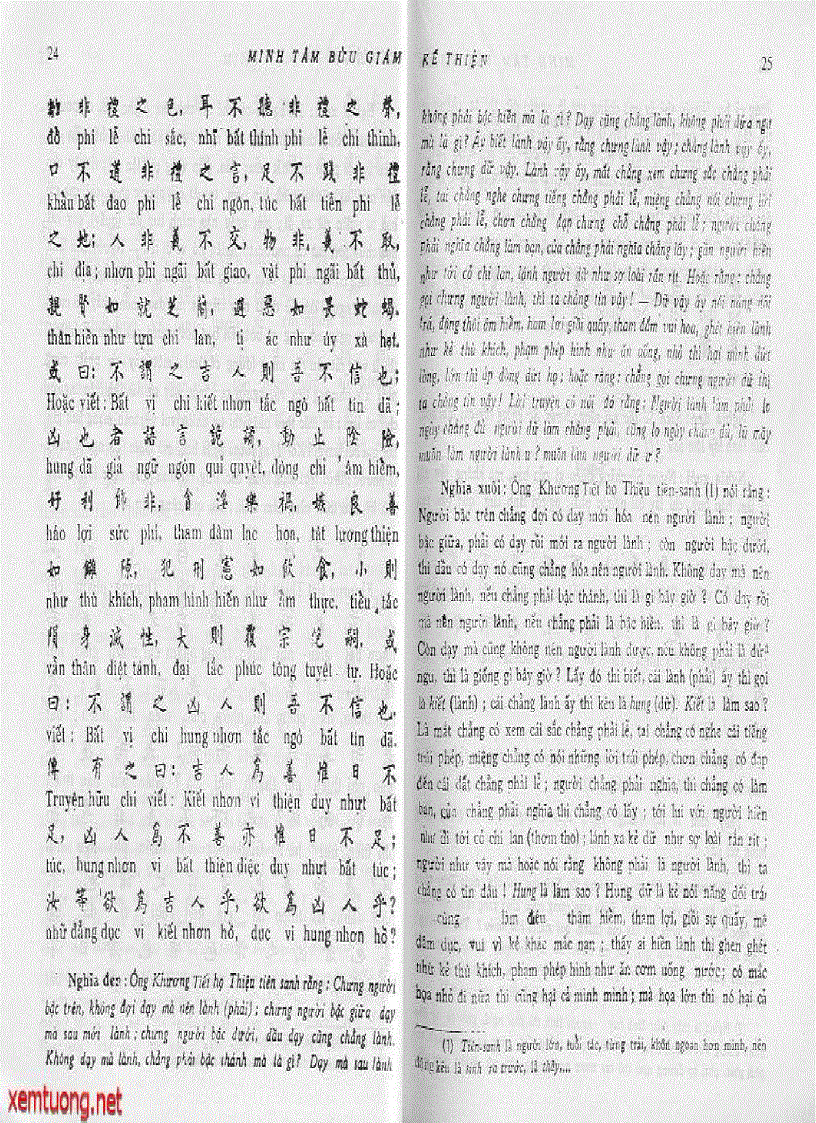 24
MINH TÂM BỬU GIÁM
物 非 禮 之 色, 耳 不 聽 非 禮 之 聲,
đồ phi lễ chi sắc, nhĩ bất thính phi lễ chi thinh,
口 不 道 非 禮 之 言, 足 不 踐 非 禮
khẩu bất đạo phi lễ chi ngôn, túc bất tiễn phi lễ
之 地; 人 非 義 不 交, 物 非 義 不 取,
chi địa; nhơn phi ngãi bất giao, vật phi ngãi bất thủ,
親 賢 如 就 芝 蘭, 避 惡 如 畏 蛇 蝎.
thân hiền như tựu chi lan, tị ác như úy xà hạt.
或 曰: 不 謂 之 吉 人 則 吾 不 信 也;
Hoặc viết: Bất vị chi kiết nhơn tắc ngô bất tín dã;
凶 也 者 語 言 詭 譎, 動 止 陰 險,
hung dã giả ngữ ngôn quỉ quyệt, động chỉ âm hiểm,
好 利 飾 非, 貪 淫 樂 禍, 嫉 良 善
háo lợi sức phi, tham dâm lạc họa, tật lương thiện
如 讎 隙, 犯 刑 憲 如 飲 食, 小 則
như thù khích, phạm hình hiến như ẩm thực, tiểu tắc
隕 身 滅 性, 大 則 覆 宗 絕 嗣, 或
vẫn thân diệt tánh, đại tắc phúc tông tuyệt tự. Hoặc
曰: 不 謂 之 凶 人 則 吾 不 信 也.
viết: Bất vị chi hung nhơn tắc ngô bất tín dã.
傳 有 之 曰: 吉 人 爲 善 惟 日 不
Truyện hữu chi viết: Kiết nhơn vi thiện duy nhựt bất
足, 凶 人 爲 不 善 亦 惟 日 不 足;
túc, hung nhơn vi bất thiện diệc duy nhựt bất túc;
汝 等 欲 爲 吉 人 乎, 欲 爲 凶 人 乎?
nhữ đẳng dục vi kiết nhơn hồ, dục vi hung nhơn hồ?
Nghĩa đen: Ông Khương Tiết họ Thiệu tiên sanh rằng: Chưng người
bậc trên, không đợi dạy mà nên lành (phải); chưng người bậc giữa dạy
mà sau mới lành; chưng người bậc dưới, dầu dạy cũng chẳng lành.
Không dạy mà lành, chẳng phải bậc thánh mà là gì? Dạy mà sau lành
KẾ THIỆN
25
không phải bậc hiền mà là gì? Dạy cũng chẳng lành, không phải đứa ngu
mà là gì? Ấy biết lành vậy ấy, rằng chưng lành vậy; chẳng lành vậy ấy,
rằng chưng dữ vậy. Lành vậy ấy, mắt chẳng xem chưng sắc chẳng phải
lễ, tai chẳng nghe chưng tiếng chẳng phải lễ, miệng chẳng nói chưng lời
chẳng phải lễ, chơn chẳng đạp chưng chỗ chẳng phải lễ; người chẳng
phải nghĩa chẳng làm bạn, của chẳng phải nghĩa chẳng lấy; gần người hiền
như tới cỏ chi lan, lánh người dữ như sợ loài rắn rít. Hoặc rằng: chẳng
gọi chưng người lành, thì ta chẳng tin vậy! — Dữ vậy ấy nói năng dối
trá, động thôi âm hiểm, ham lợi giồi quấy, tham đắm vui họa, ghét hiền lành
như kẻ thù khích, phạm phép hình như ăn uống, nhỏ thì hại mình dứt
lòng, lớn thì úp dòng dứt họ; hoặc rằng: chẳng gọi chưng người dữ thì
ta chẳng tin vậy! Lời truyện có nói đó rằng: Người lành làm phải lo
ngày chẳng đủ người dữ làm chẳng phải, cũng lo ngày chẳng đủ, lũ mầy
muốn làm người lành ư? muốn làm người dữ ư?
Nghĩa xuôi: Ông Khương Tiết họ Thiệu tiên-sanh (1) nói rằng:
Người bậc trên chẳng đợi có dạy mới hóa nên người lành; người
bậc giữa, phải có dạy rồi mới ra người lành; còn người bậc dưới,
thì dầu có dạy nó cũng chẳng hóa nên người lành. Không dạy mà nên
người lành, nếu chẳng phải bậc thánh, thì là gì bây giờ? Có dạy rồi
mà nên người lành, nếu chẳng phải là bậc hiền, thì là gì bây giờ?
Còn dạy mà cũng không nên người lành được, nếu không phải là đứa
ngu, thì là giống gì bây giờ? Lấy đó thì biết, cái lành (phải) ấy thì gọi
là kiết (lành); cái chẳng lành ấy thì kêu là hung (dữ). Kiết là làm sao?
Là mắt chẳng có xem cái sắc chẳng phải lễ, tai chẳng có nghe cái tiếng
trái phép, miệng chẳng có nói những lời trái phép, chơn chẳng có đạp
đến cái đất chẳng phải lễ; người chẳng phải nghĩa, thì chẳng có làm
bạn, của chẳng phải nghĩa thì chẳng có lấy; tới lui với người hiền
như đi tới cỏ chi lan (thơm tho); lánh xa kẻ dữ như sợ loài rắn rít;
người như vậy mà hoặc nói rằng không phải là người lành, thì ta
chẳng có tin đâu! Hung là làm sao? Hung dữ là kẻ nói năng dối trá;
cùng làm đều thâm hiểm, tham lợi, giồi sự quấy, mê
dâm dục, vui vì kẻ khác mắc nạn; thấy ai hiền lành thì ghen ghét
như kẻ thù khích, phạm phép hình như ăn cơm uống nước; có mắc
họa nhỏ đi nữa thì cũng hại cả mình; mà họa lớn thì nó hại cả
(1) Tiên-sanh là người lớn, tuổi tác, từng trải, khôn ngoan hơn mình, nên
đáng kêu là sanh ra trước, là thầy....
xemtuong.net